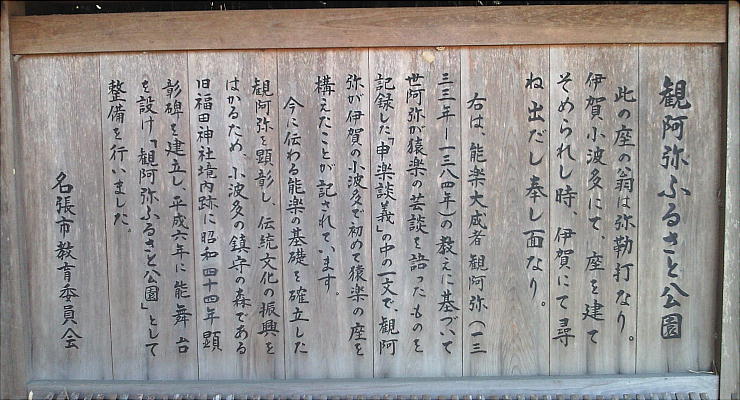 観阿弥ふるさと公園
此の座の翁は弥勒打なり。
伊賀小波多にて座を建て
そめられし時、伊賀にて尋
ね出だし奉し面なり。
右は、能楽大成者観阿弥（一三
三三年ー一三八四年）の教えに基づいて
世阿弥が猿楽の芸談を語ったものを
記録した「申楽談義」の中の一文で、観阿
弥が伊賀の小波多で初めて猿楽の座を
構えたことが記されています。
今に伝わる能楽の基礎を確立した
観阿弥を顕彰し、伝統文化の振興を
はかるため、小波多の鎮守の森である
旧福田神社境内跡に昭和四十四年顕
彰碑を建立し、平成六年に能舞台
を設け「観阿弥ふるさと公園」として
整備を行いました。
名張市教育委員会